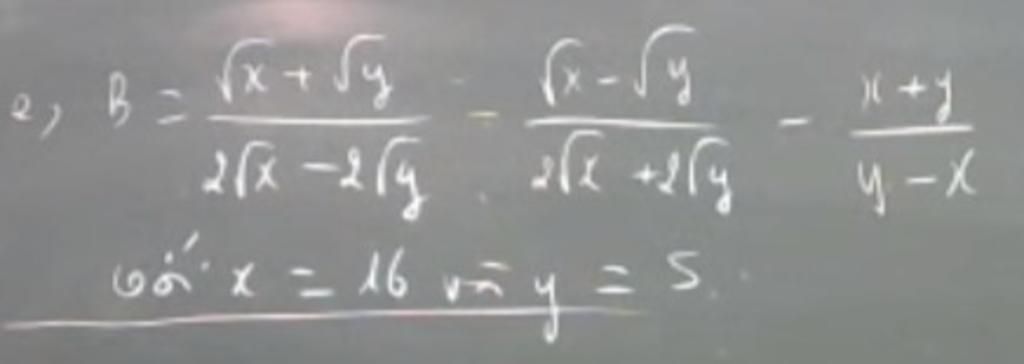 e, B = (√x + √y)/(2√x - 2√y) - (√x - √y)/(2√x + 2√y) - (x + y)/(y - x)
với x = 16 và y = 5.